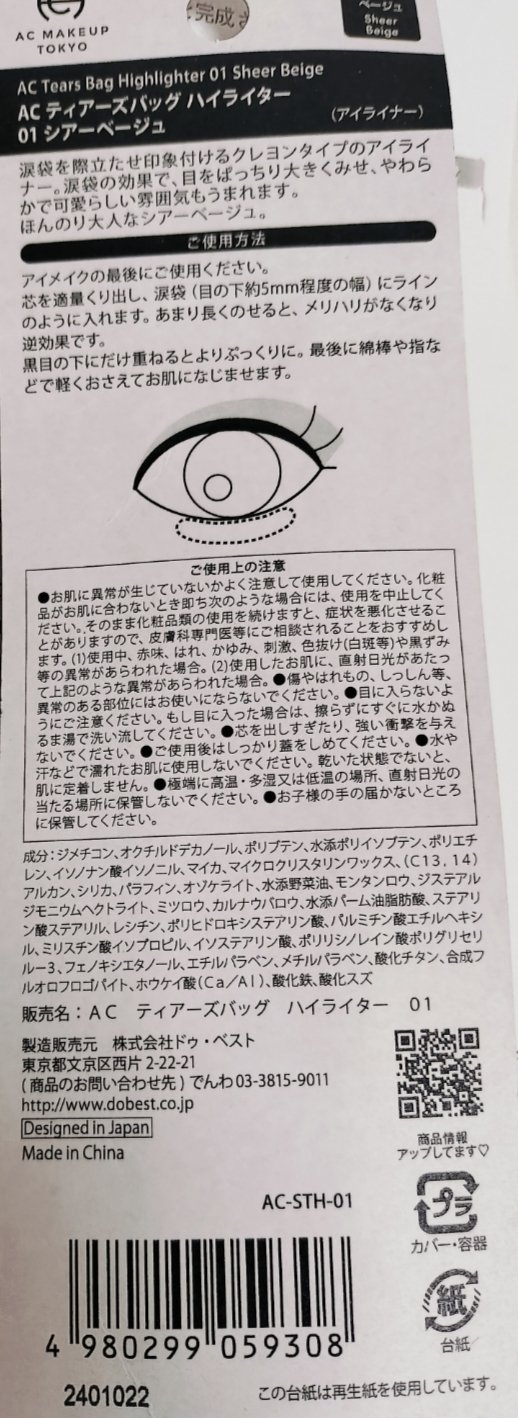 AC MAKEUP
TOKYO
完成
ベージュ
Sheer
Beige
AC Tears Bag Highlighter 01 Sheer Beige
AC ティアーズバッグ ハイライター
01 シアーベージュ
（アイライナー）
涙袋を際立たせ印象付けるクレヨンタイプのアイライ
ナー。涙袋の効果で、目をぱっちり大きくみせ、やわら
かで可愛らしい雰囲気もうまれます。
ほんのり大人なシアーベージュ。
ご使用方法
アイメイクの最後にご使用ください。
芯を適量くり出し、涙袋（目の下約5mm程度の幅）にライン
のように入れます。あまり長くのせると、メリハリがなくなり
逆効果です。
黒目の下にだけ重ねるとよりぷっくりに。最後に綿棒や指な
どで軽くおさえてお肌になじませます。
ご使用上の注意
●お肌に異常が生じていないかよく注意して使用してください。化粧
品がお肌に合わないとき即ち次のような場合には、使用を中止してく
ださい。そのまま化粧品類の使用を続けますと、症状を悪化させるこ
とがありますので、皮膚科専門医等にご相談されることをおすすめし
ます。(1)使用中、赤味、はれ、かゆみ、刺激、色抜け(白斑等)や黒ずみ
等の異常があらわれた場合。(2)使用したお肌に、直射日光があたっ
て上記のような異常があらわれた場合。●傷やはれもの、しっしん等、
異常のある部位にはお使いにならないでください。●目に入らないよ
うにご注意ください。もし目に入った場合は、擦らずにすぐに水かぬ
るま湯で洗い流してください。●芯を出しすぎたり、強い衝撃を与え
ないでください。●ご使用後はしっかり蓋をしめてください。●水や
汗などで濡れたお肌に使用しないでください。乾いた状態でないと、
肌に定着しません。●極端に高温・多湿又は低温の場所、直射日光の
当たる場所に保管しないでください。●お子様の手の届かないところ
に保管してください。
成分：ジメチコン、オクチルドデカノール、ポリブテン、水添ポリイソブテン、ポリエチ
レン、イソノナン酸イソノニル、マイカ、マイクロクリスタリンワックス、（C13，14）
アルカン、シリカ、パラフィン、オゾケライト、水添野菜油、モンタンロウ、ジステアル
ジモニウムヘクトライト、ミツロウ、カルナウバロウ、水添パーム油脂肪酸、ステアリ
ン酸ステアリル、レシチン、ポリヒドロキシステアリン酸、パルミチン酸エチルヘキシ
ル、ミリスチン酸イソプロピル、イソステアリン酸、ポリリシノレイン酸ポリグリセリ
ル－3、フェノキシエタノール、エチルパラベン、メチルパラベン、酸化チタン、合成フ
ルオロフロゴパイト、ホウケイ酸（Ca／Al）、酸化鉄、酸化スズ
販売名：ＡＣ　ティアーズバッグ　ハイライター　01
製造販売元　株式会社ドゥ・ベスト
東京都文京区西片 2-22-21
( 商品のお問い合わせ先 ) でんわ 03-3815-9011
http://www.dobest.co.jp
Designed in Japan
Made in China
商品情報
アップしてます♡
AC-STH-01
プラ
カバー・容器
紙
台紙
4 980299 059308
2401022
この台紙は再生紙を使用しています。